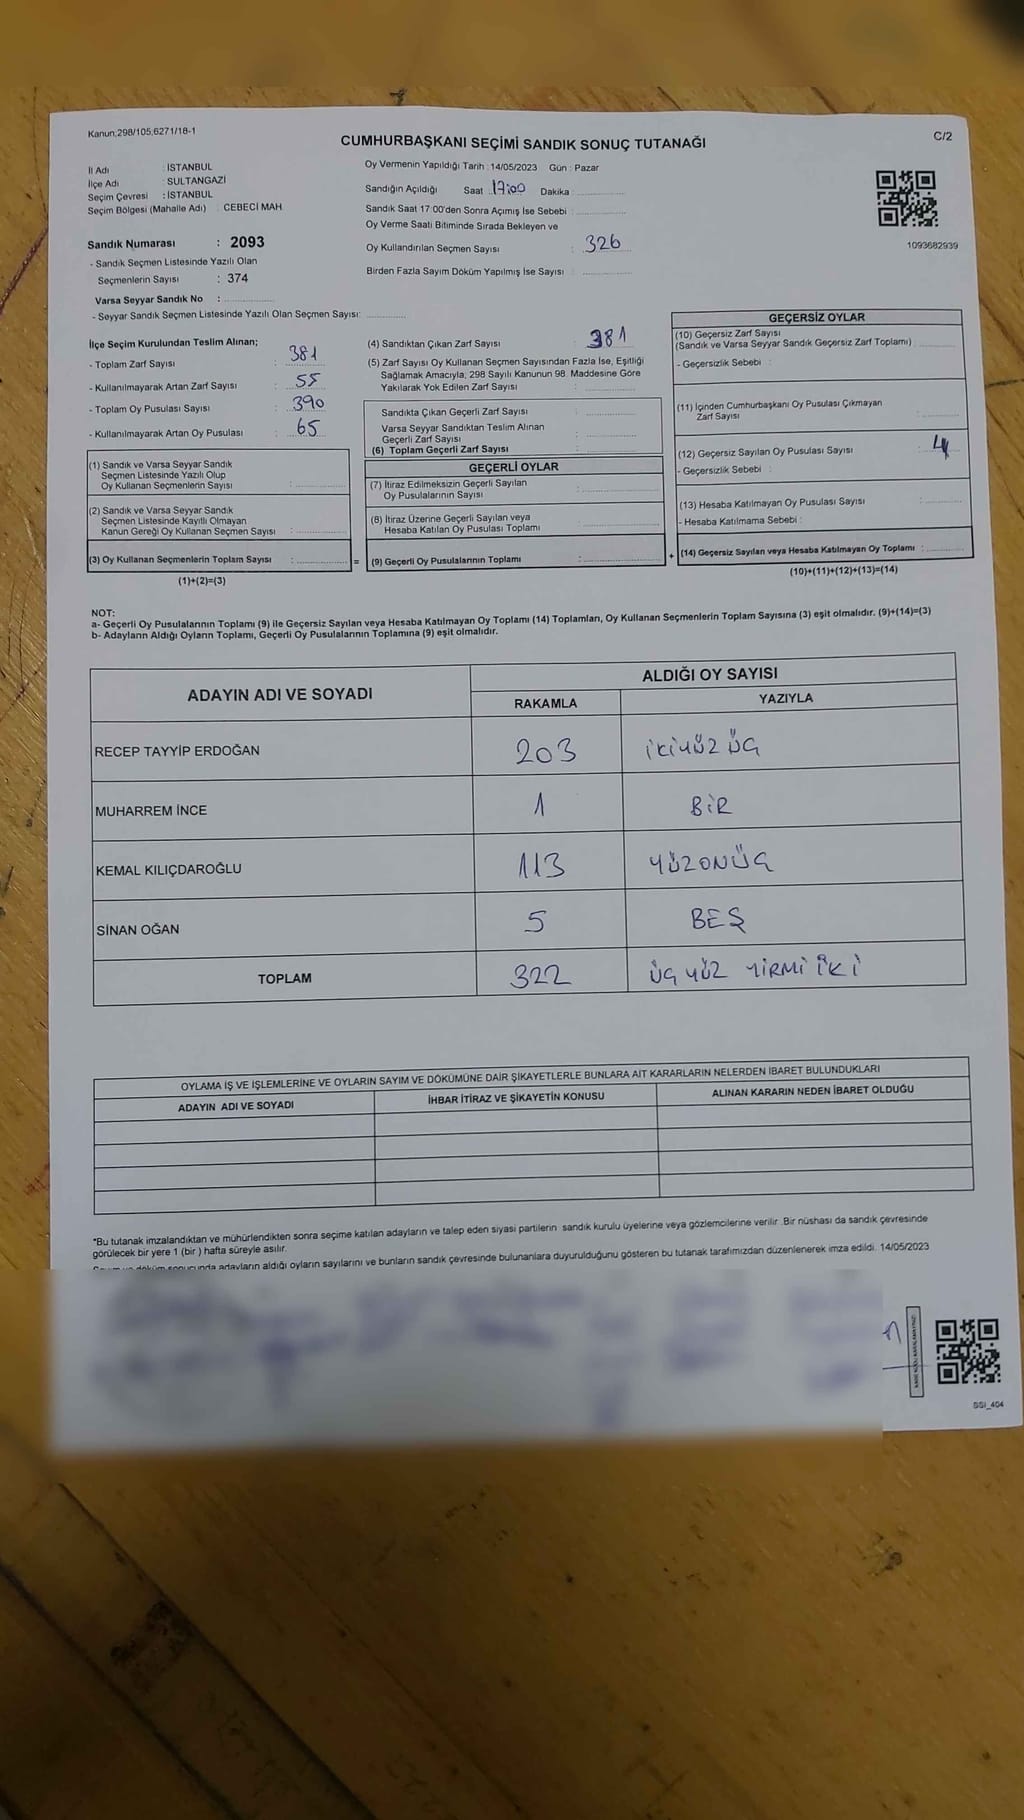 Kanun:298/105,6271/18-1
C/2
CUMHURBAŞKANI SEÇİMİ SANDIK SONUÇ TUTANAĞI
İl Adı : İSTANBUL
İlçe Adı : SULTANGAZİ
Seçim Çevresi : İSTANBUL
Seçim Bölgesi (Mahalle Adı) : CEBECİ MAH
Sandık Numarası : 2093
- Sandık Seçmen Listesinde Yazılı Olan
Seçmenlerin Sayısı : 374
Varsa Seyyar Sandık No :
- Seyyar Sandık Seçmen Listesinde Yazılı Olan Seçmen Sayısı:
Oy Vermenin Yapıldığı Tarih :14/05/2023 Gün : Pazar
Sandığın Açıldığı Saat 17:00 Dakika
Sandık Saat 17:00'den Sonra Açımış İse Sebebi :
Oy Verme Saati Bitiminde Sırada Bekleyen ve
Oy Kullandırılan Seçmen Sayısı : 326
Birden Fazla Sayım Döküm Yapılmış İse Sayısı :
1093682939
İlçe Seçim Kurulundan Teslim Alınan;
- Toplam Zarf Sayısı : 381
- Kullanılmayarak Artan Zarf Sayısı : 55
- Toplam Oy Pusulası Sayısı : 390
- Kullanılmayarak Artan Oy Pusulası : 65
(1) Sandık ve Varsa Seyyar Sandık
Seçmen Listesinde Yazılı Olup
Oy Kullanan Seçmenlerin Sayısı :
(2) Sandık ve Varsa Seyyar Sandık
Seçmen Listesinde Kayıtlı Olmayan
Kanun Gereği Oy Kullanan Seçmen Sayısı :
(3) Oy Kullanan Seçmenlerin Toplam Sayısı :
(1)+(2)=(3)
(4) Sandıktan Çıkan Zarf Sayısı : 381
(5) Zarf Sayısı Oy Kullanan Seçmen Sayısından Fazla İse, Eşitliği
Sağlamak Amacıyla, 298 Sayılı Kanunun 98. Maddesine Göre
Yakılarak Yok Edilen Zarf Sayısı :
Sandıkta Çıkan Geçerli Zarf Sayısı :
Varsa Seyyar Sandıktan Teslim Alınan
Geçerli Zarf Sayısı :
(6) Toplam Geçerli Zarf Sayısı :
GEÇERLİ OYLAR
(7) İtiraz Edilmeksizin Geçerli Sayılan
Oy Pusulalarının Sayısı :
(8) İtiraz Üzerine Geçerli Sayılan veya
Hesaba Katılan Oy Pusulası Toplamı :
= (9) Geçerli Oy Pusulalarının Toplamı :
GEÇERSİZ OYLAR
(10) Geçersiz Zarf Sayısı
(Sandık ve Varsa Seyyar Sandık Geçersiz Zarf Toplamı) :
- Geçersizlik Sebebi :
(11) İçinden Cumhurbaşkanı Oy Pusulası Çıkmayan
Zarf Sayısı :
(12) Geçersiz Sayılan Oy Pusulası Sayısı : 4
- Geçersizlik Sebebi :
(13) Hesaba Katılmayan Oy Pusulası Sayısı :
- Hesaba Katılmama Sebebi :
+ (14) Geçersiz Sayılan veya Hesaba Katılmayan Oy Toplamı :
(10)+(11)+(12)+(13)=(14)
NOT:
a- Geçerli Oy Pusulalarının Toplamı (9) ile Geçersiz Sayılan veya Hesaba Katılmayan Oy Toplamı (14) Toplamları, Oy Kullanan Seçmenlerin Toplam Sayısına (3) eşit olmalıdır. (9)+(14)=(3)
b- Adayların Aldığı Oyların Toplamı, Geçerli Oy Pusulalarının Toplamına (9) eşit olmalıdır.
ADAYIN ADI VE SOYADI ALDIĞI OY SAYISI
RAKAMLA YAZIYLA
RECEP TAYYİP ERDOĞAN 203 İKİYÜZ ÜÇ
MUHARREM İNCE 1 BİR
KEMAL KILIÇDAROĞLU 113 YÜZONÜÇ
SİNAN OĞAN 5 BEŞ
TOPLAM 322 ÜÇ YÜZ YİRMİ İKİ
OYLAMA İŞ VE İŞLEMLERİNE VE OYLARIN SAYIM VE DÖKÜMÜNE DAİR ŞİKAYETLERLE BUNLARA AİT KARARLARIN NELERDEN İBARET BULUNDUKLARI
ADAYIN ADI VE SOYADI İHBAR İTİRAZ VE ŞİKAYETİN KONUSU ALINAN KARARIN NEDEN İBARET OLDUĞU
*Bu tutanak imzalandıktan ve mühürlendikten sonra seçime katılan adayların ve talep eden siyasi partilerin sandık kurulu üyelerine veya gözlemcilerine verilir .Bir nüshası da sandık çevresinde
görülecek bir yere 1 (bir ) hafta süreyle asılır.
Sayım ve döküm sonucunda adayların aldığı oyların sayılarını ve bunların sandık çevresinde bulunanlara duyurulduğunu gösteren bu tutanak tarafımızdan düzenlenerek imza edildi. 14/05/2023
SSI_404